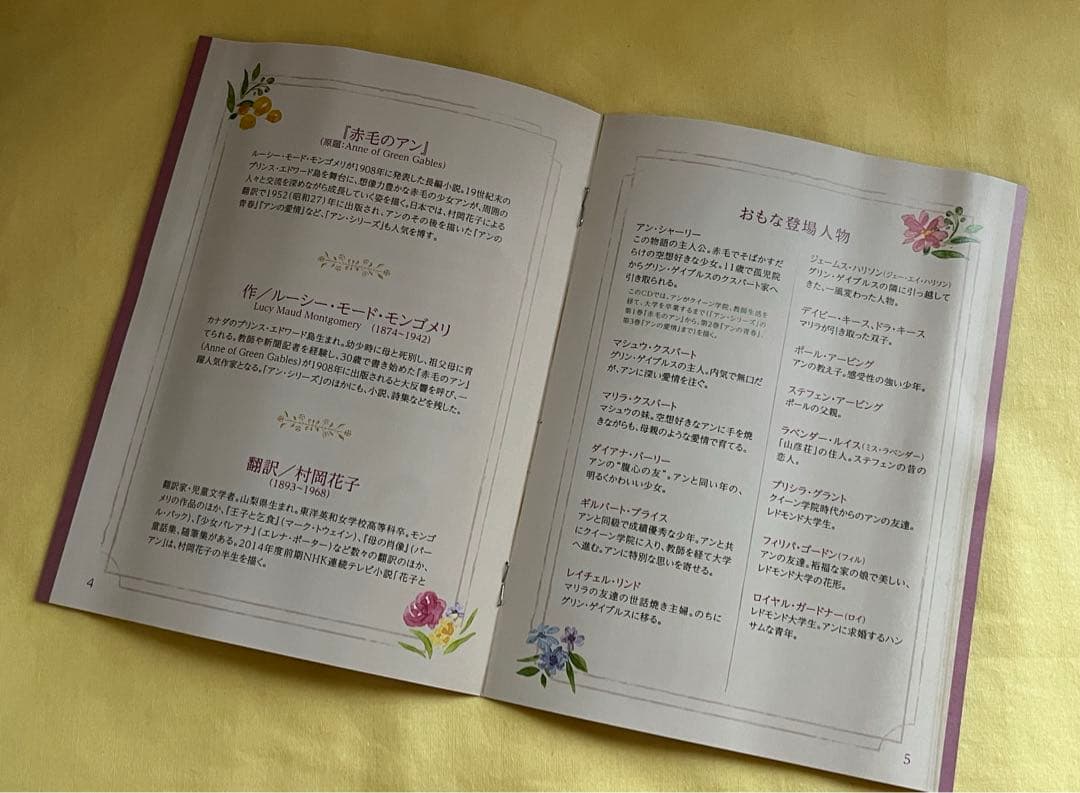 『赤毛のアン』
(原題:Anne of Green Gables)
ルーシー・モード・モンゴメリが1908年に発表した長編小説。19世紀末の
プリンス・エドワード島を舞台に、想像力豊かな赤毛の少女アンが、周囲の
人々と交流を深めながら成長していく姿を描く。日本では、村岡花子による
翻訳で1952(昭和27)年に出版され、アンのその後を描いた『アンの
青春』『アンの愛情』など、「アン・シリーズ」も人気を博す。
作/ルーシー・モード・モンゴメリ
Lucy Maud Montgomery (1874~1942)
カナダのプリンス・エドワード島生まれ。幼少時に母と死別し、祖父母に育
てられる。教師や新聞記者を経験し、30歳で書き始めた『赤毛のアン』
(Anne of Green Gables)が1908年に出版されると大反響を呼び、一
躍人気作家となる。「アン・シリーズ」のほかにも、小説、詩集などを残した。
翻訳/村岡花子
(1893~1968)
翻訳家・児童文学者。山梨県生まれ。東洋英和女学校高等科卒。モンゴ
メリの作品のほか、『王子と乞食』(マーク・トウェイン)、『母の肖像』(パー
ル・バック)、『少女パレアナ』(エレナ・ポーター)など数々の翻訳のほか、
童話集、随筆集がある。2014年度前期NHK連続テレビ小説「花子と
アン」は、村岡花子の半生を描く。
4
おもな登場人物
アン・シャーリー
この物語の主人公。赤毛でそばかすだ
らけの空想好きな少女。11歳で孤児院
からグリン・ゲイブルスのクスバート家へ
引き取られる。
このCDでは、アンがクイーン学院、教師生活を
経て、大学を卒業するまで(「アン・シリーズ」の
第1巻『赤毛のアン』から、第2巻『アンの青春』、
第3巻『アンの愛情』まで)を描く。
マシュウ・クスバート
グリン・ゲイブルスの主人。内気で無口だ
が、アンに深い愛情を注ぐ。
マリラ・クスバート
マシュウの妹。空想好きなアンに手を焼
きながらも、母親のような愛情で育てる。
ダイアナ・バーリー
アンの“腹心の友”。アンと同い年の、
明るくかわいい少女。
ギルバート・ブライス
アンと同級で成績優秀な少年。アンと共
にクイーン学院に入り、教師を経て大学
へ進む。アンに特別な思いを寄せる。
レイチェル・リンド
マリラの友達の世話焼き主婦。のちに
グリン・ゲイブルスに移る。
ジェームス・ハリソン(ジェー・エイ・ハリソン)
グリン・ゲイブルスの隣に引っ越して
きた、一風変わった人物。
デイビー・キース、ドラ・キース
マリラが引き取った双子。
ポール・アービング
アンの教え子。感受性の強い少年。
ステフェン・アービング
ポールの父親。
ラベンダー・ルイス(ミス・ラベンダー)
「山彦荘」の住人。ステフェンの昔の
恋人。
プリシラ・グラント
クイーン学院時代からのアンの友達。
レドモンド大学生。
フィリパ・ゴードン(フィル)
アンの友達。裕福な家の娘で美しい、
レドモンド大学の花形。
ロイヤル・ガードナー(ロイ)
レドモンド大学生。アンに求婚するハン
サムな青年。
5